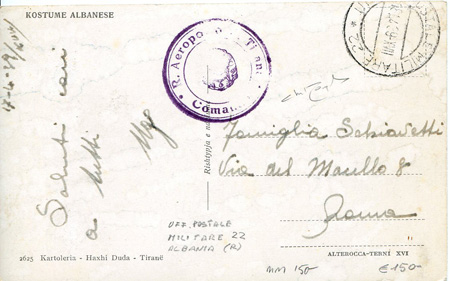 KOSTUME ALBANESE
Saluti cari
a tutti
Ugo
R. Aeropo
Tirana
Coman
MILITARE 22 *
Famiglia Schiavetti
Via del Maullo 8
Roma
UFF. POSTALE
MILITARE 22
ALBANIA (R)
2625 Kartoleria - Haxhi Duda - Tiranë
ALTEROCCA-TERNI XVI
MM 150-
€150-